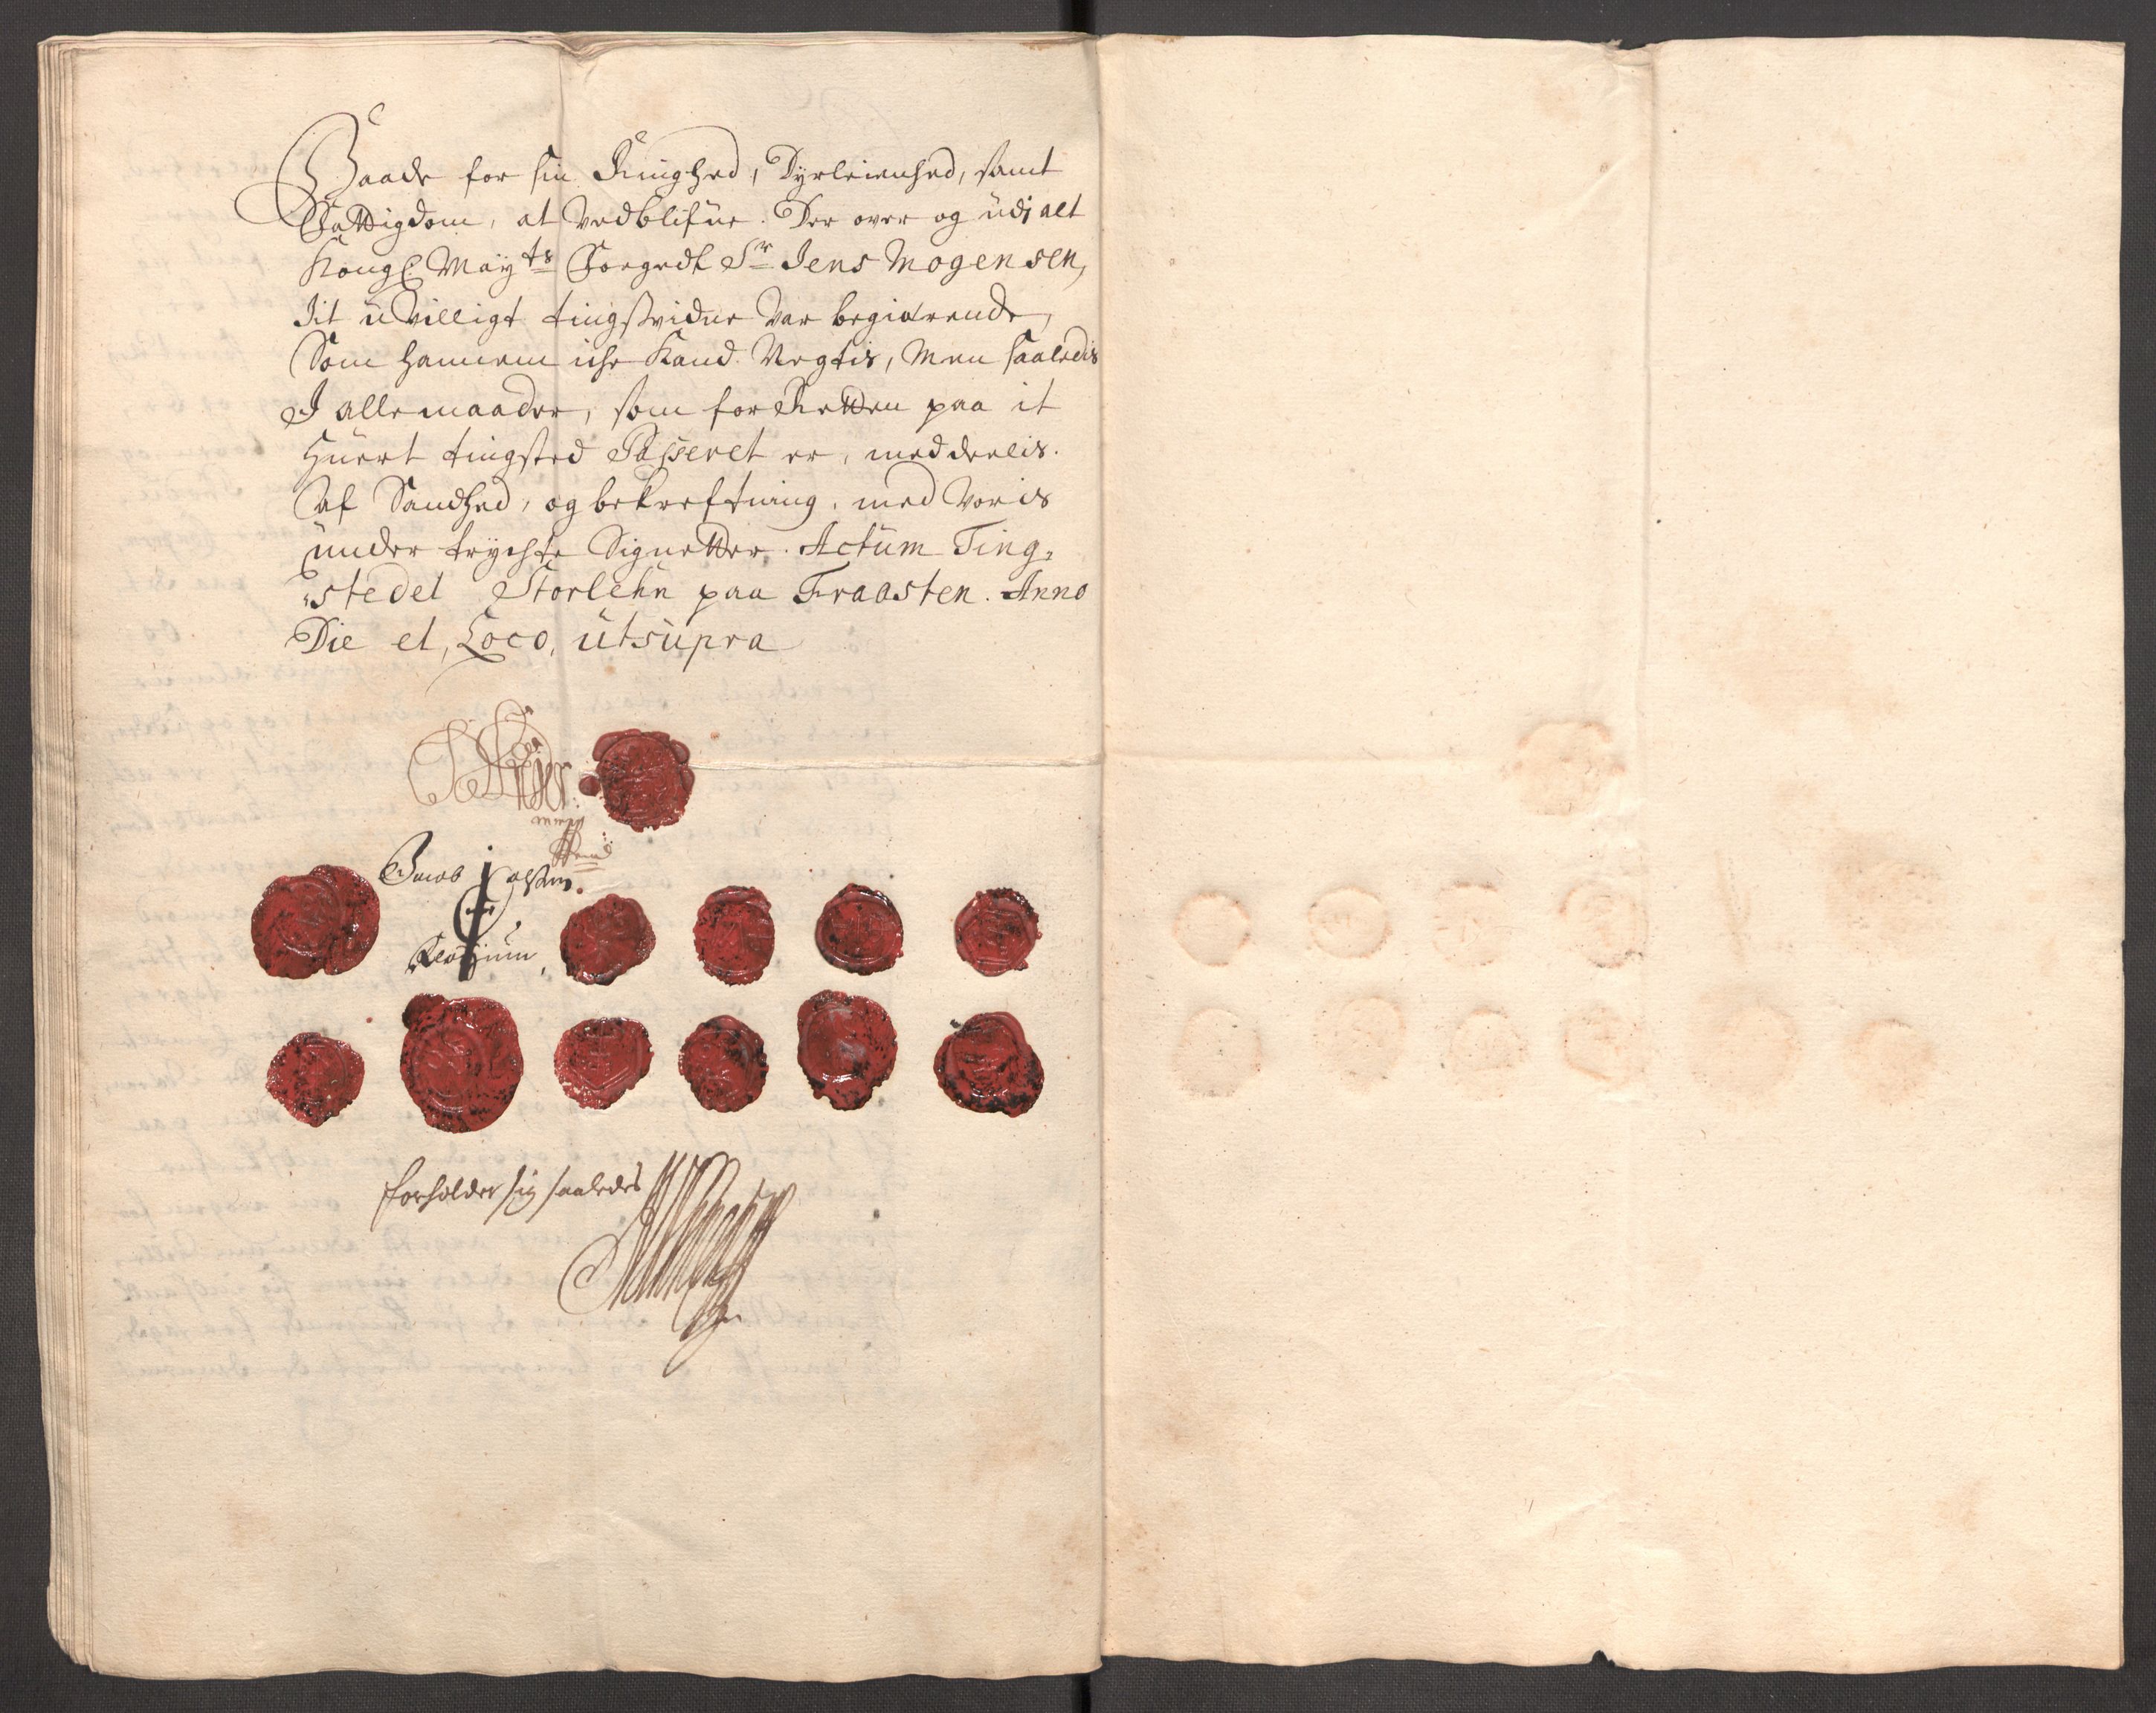 Baade for sin Ringhed, Dyrleienhed, samt
Fattigdom, at vedblifue. Der over og udj alt
Kongl: Maÿts Foegedt Sr Jens Mogensen,
Jit uvilligt tingsvidne var begiærende,
Som hannem iche Kand Negtis, Men saaledis
I alle maader, som for Retten paa it
Huert tingsted Passeret er, meddeelis.
Af Sandhed, og bekreftning, med voris
under tryckte Signetter. Actum Ting-
stedet Storlehn paa Fraasten. Anno
Die et, Loco, utsupra
mmpp
Jacob
forholder sig saaledes